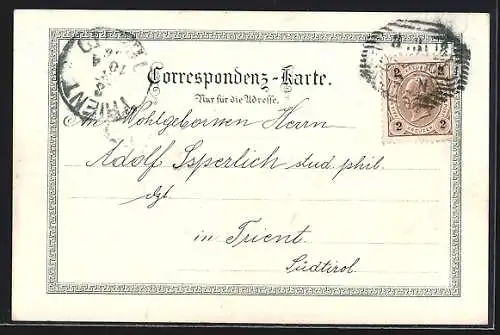 Correspondenz-Karte.
Nur für die Adresse.
An Wohlgebornen Herrn
Adolf Isperlich stud. phil.
dzt.
in Trient
Südtirol
TRIENT
2 2
2 2